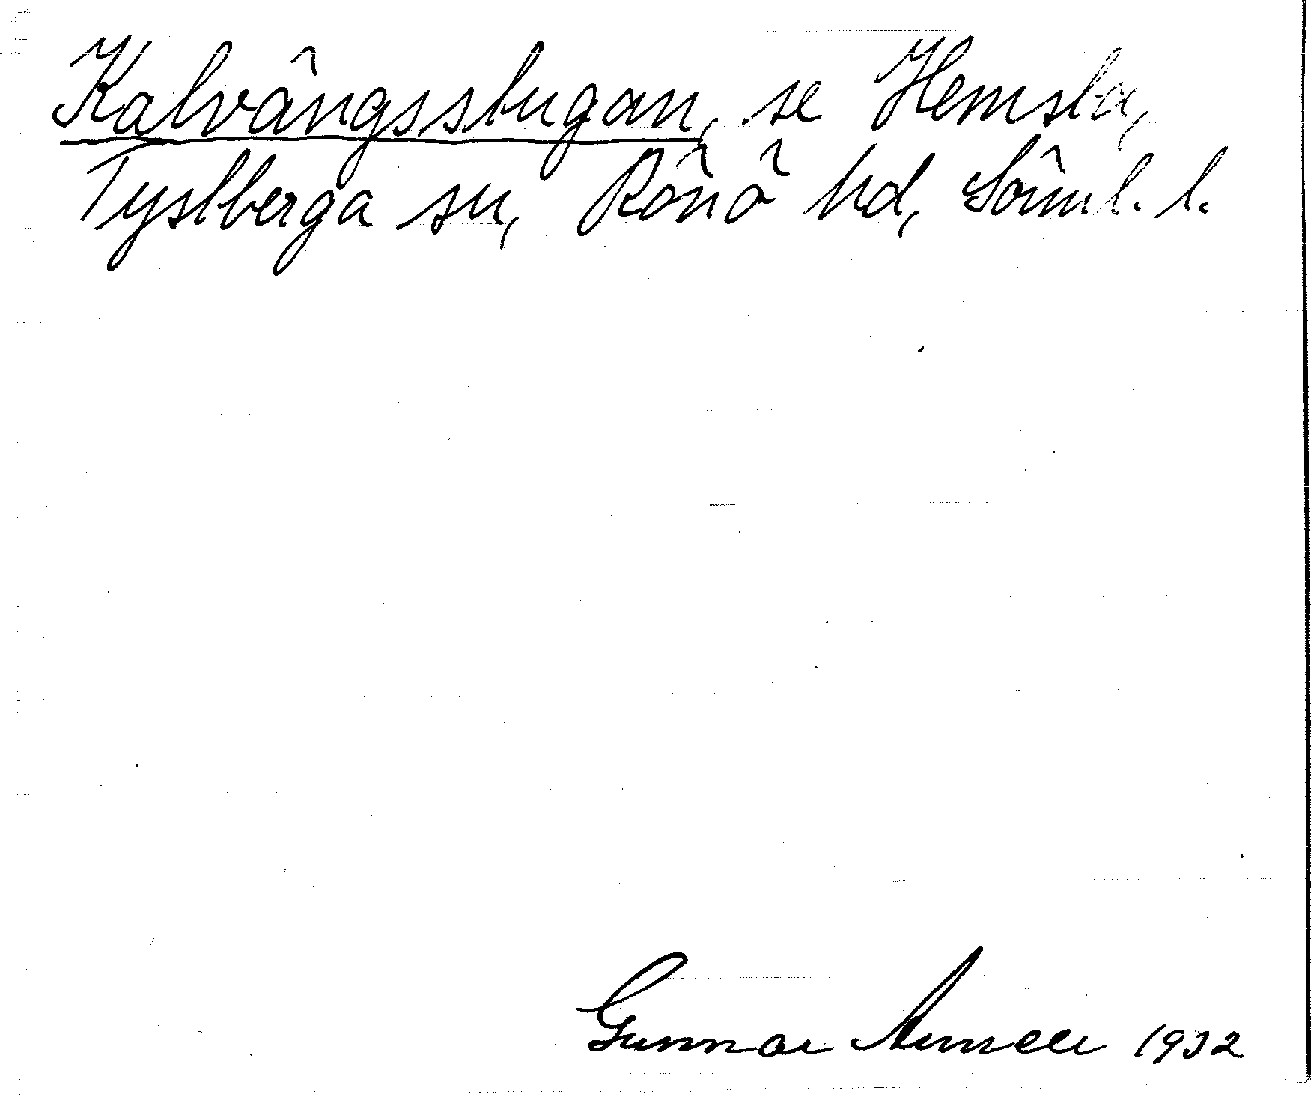 Kalvängsstugan, se Hemsta,
Tystberga sn, Rönö hd, Söml. l.
Gunnar Annell 1932